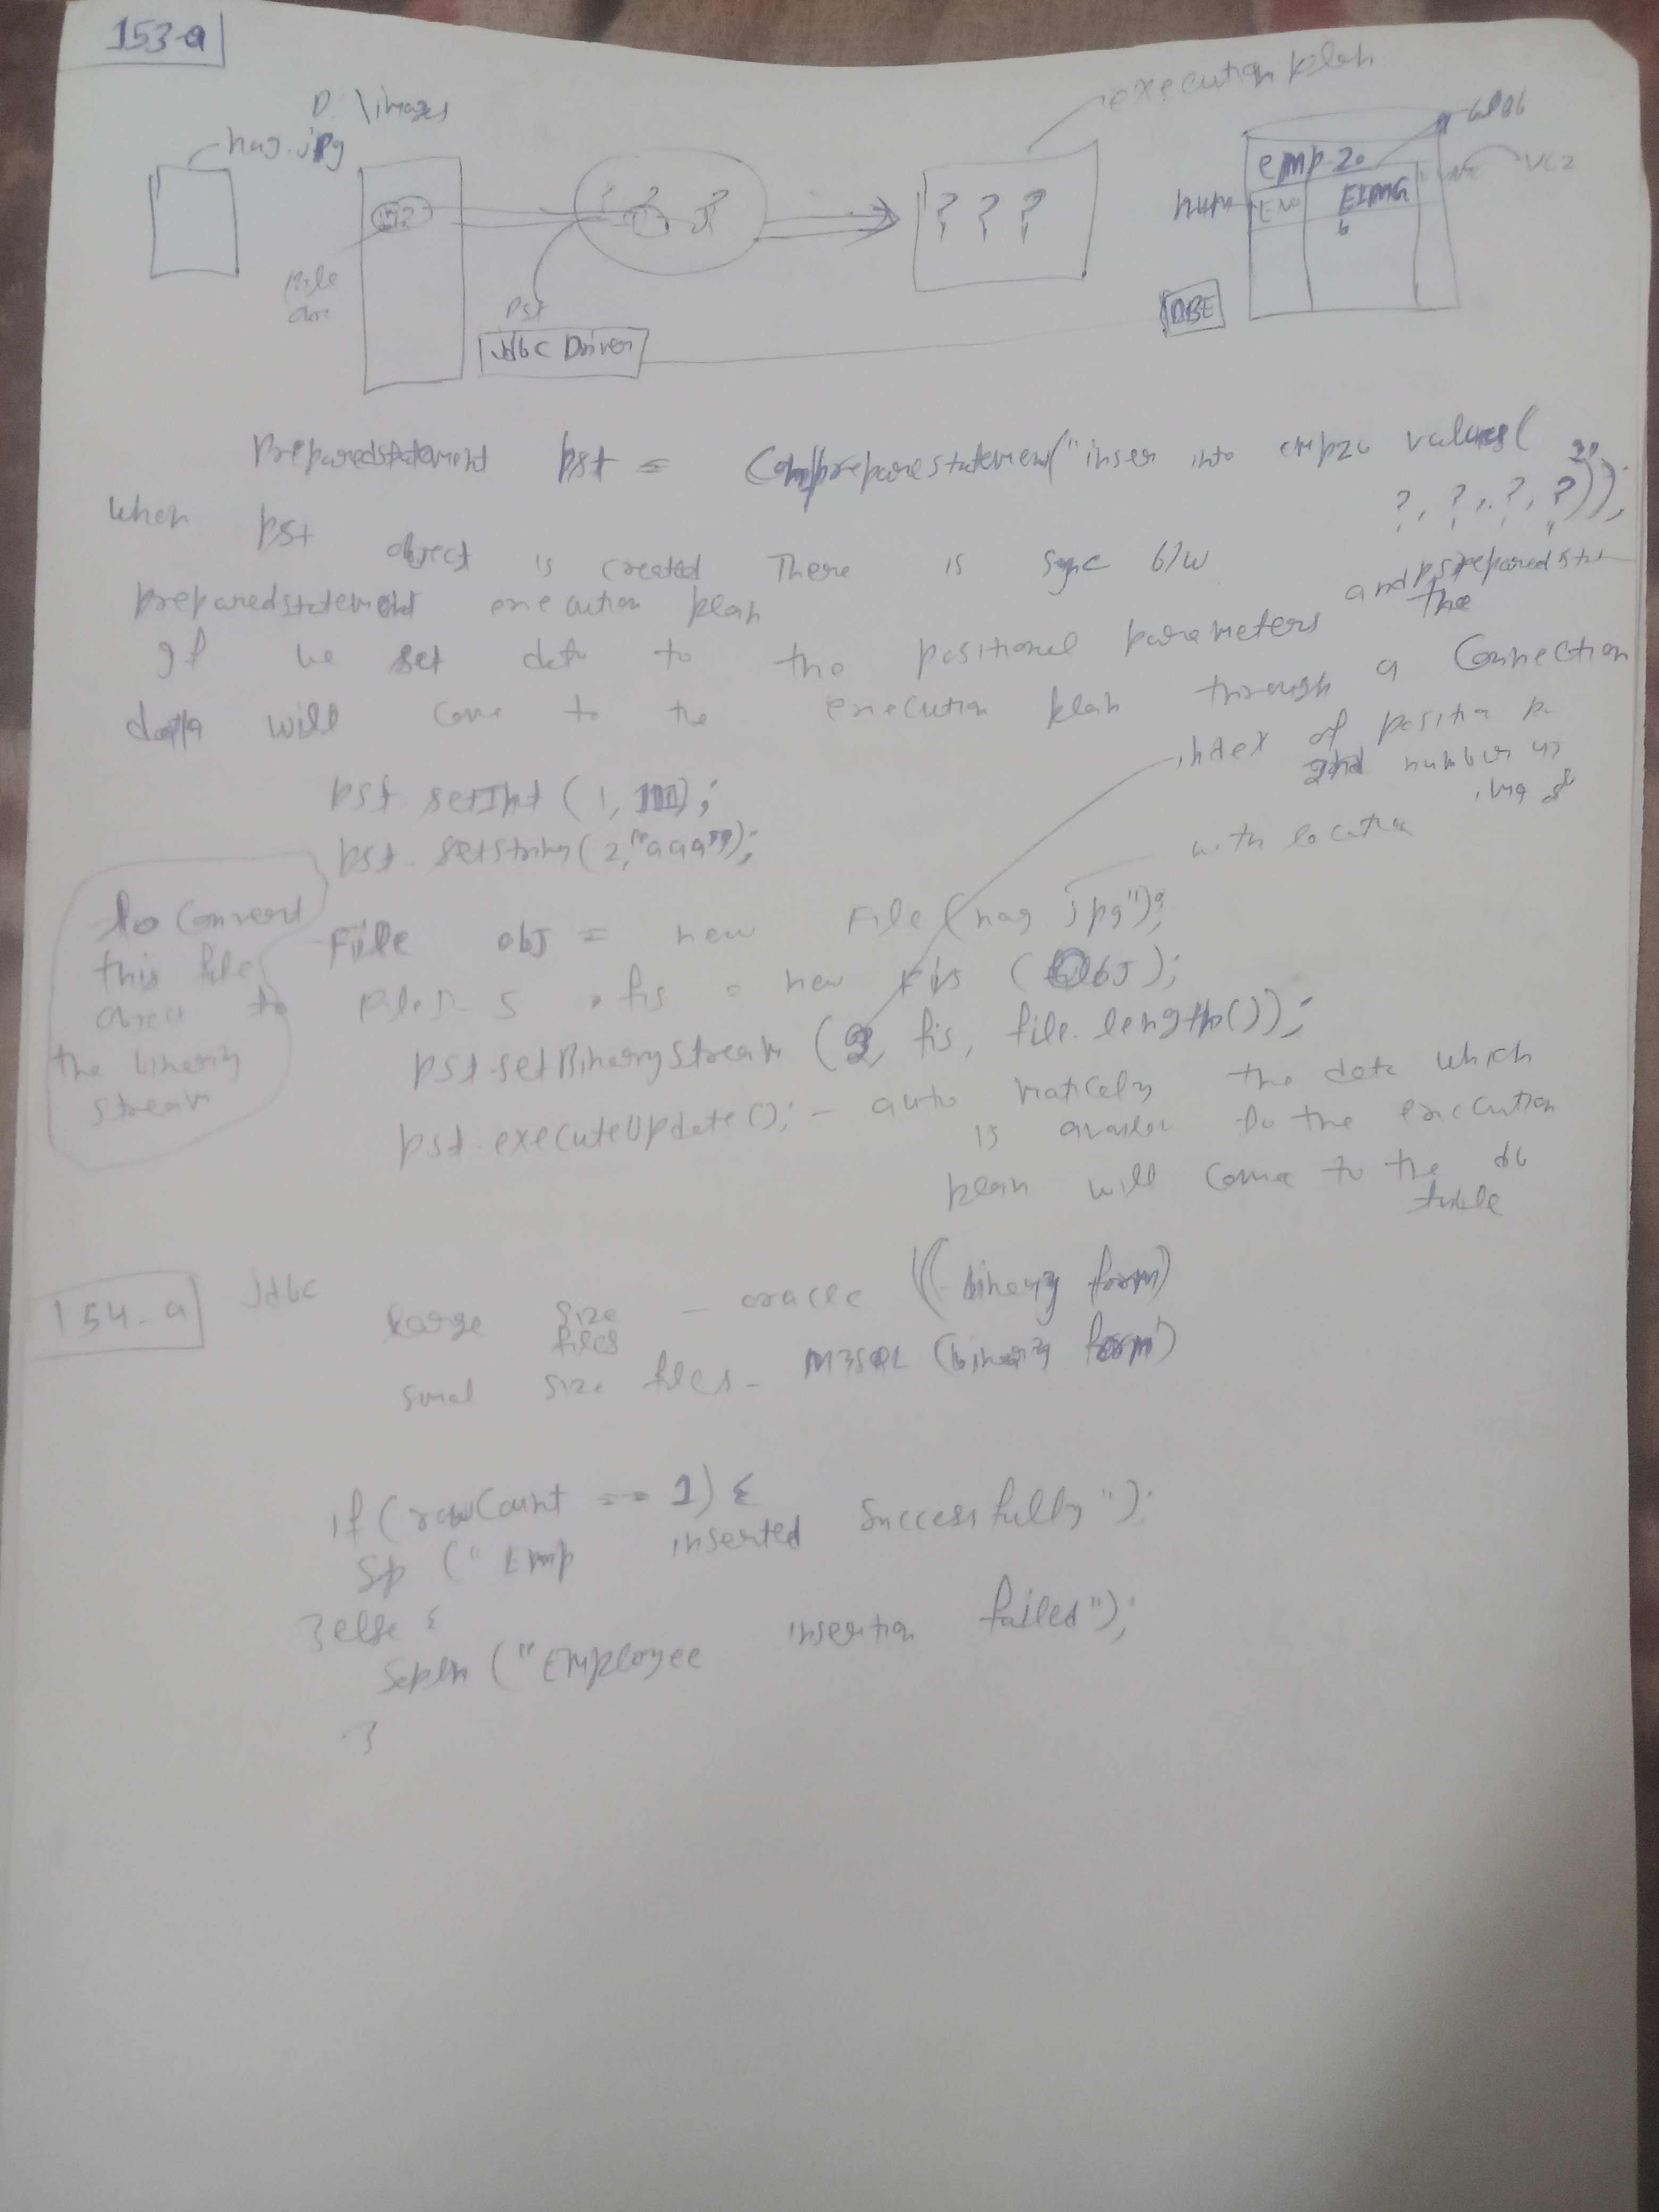 153-a
D:\images
nag.jpg
execution plan
blob
emp20
ENO
EIMG
b
num
VC2
? ? ?
? ? ?
DBE
pst
Jdbc Driver
Preparedstatement pst = Con.preparestatement("inser into emp20 values(
?, ?, ?, ?"));
When pst object is created There is sync b/w
preparedstatement execution plan
If we set data to the positional parameters and the
data will come to the execution plan through a Connection
index of position p
2nd number
pst.setInt(1, 111);
pst.setString(2,"aaa");
with location
to convert
this file
object to
the binary
stream
File obj = new File(nag.jpg");
FileIS fis = new FIS (obj);
pst.setBinaryStream (3, fis, file.length());
pst.executeUpdate(); - automatically the data which
is availa to the execution
plan will come to the db
table
154-a
Jdbc
large size files - oracle (binary form)
smal size files - MYSQL (binary form)
if(rowCount == 1) {
Sp ("Emp inserted Successfully");
}else {
Sopln ("Employee insertion failed");
}